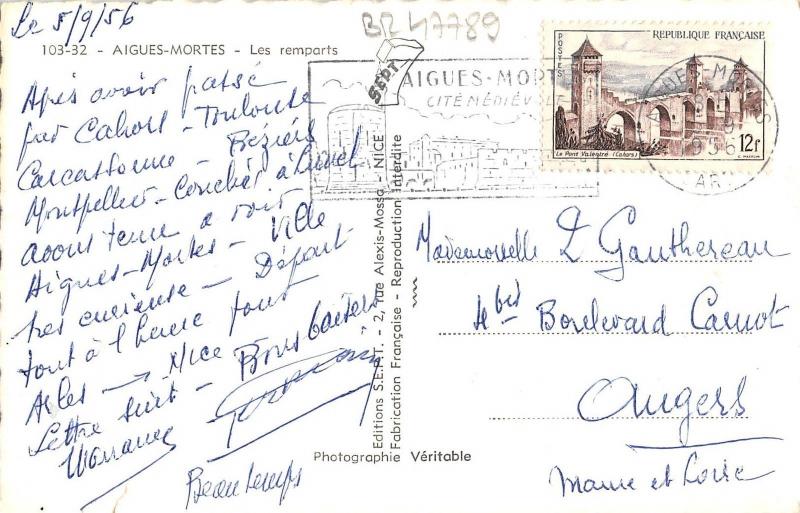 Le 5/9/56
BR 47789
103-32 - AIGUES-MORTES - Les remparts
Après avoir passé
par Cahors - Toulouse
Carcassonne - Béziers
Montpellier - Coucher à Lunel
avons tenu à voir
Aigues-Mortes - Ville
très curieuse - Départ
tout à l'heure pour
Arles → Nice
Lettre suit - Bons baisers
Beau temps
Editions S.E.P.T. - 2, rue Alexis-Mossa - NICE
Fabrication Française - Reproduction Interdite
SEPT
Photographie Véritable
AIGUES-MORTES
CITÉ MÉDIÉVALE
POSTES
REPUBLIQUE FRANÇAISE
Le Pont Valentré (Cahors)
12f
AIGUES-MORTES
1956
GARD
Mademoiselle L Gauthereau
4 bis Boulevard Carnot
Angers
Maine et Loire